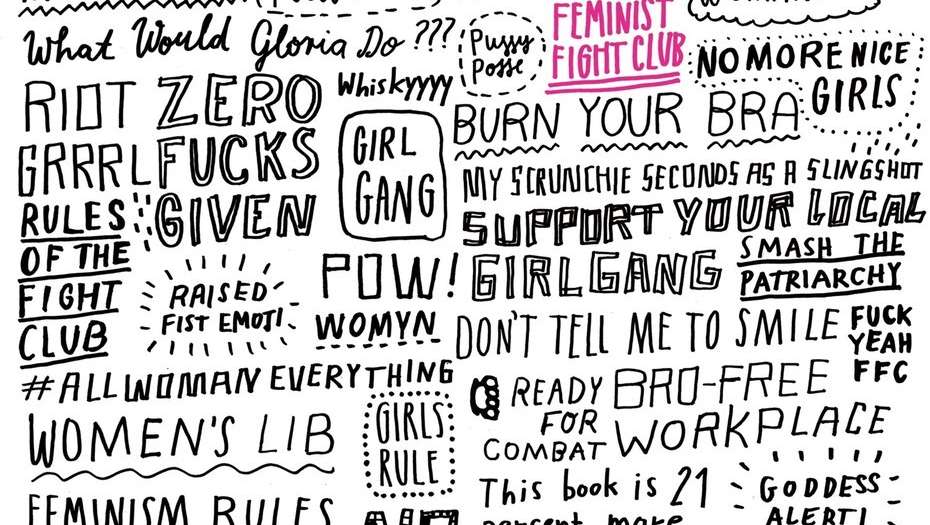 What Would Gloria Do ???
Pussy
Posse
FEMINIST
FIGHT CLUB
NO MORE NICE
GIRLS
RIOT
GRRRL
ZERO
FUCKS
GIVEN
Whiskyyyy
GIRL
GANG
BURN YOUR BRA
MY SCRUNCHIE SECONDS AS A SLINGSHOT
SUPPORT YOUR LOCAL
GIRLGANG
SMASH THE
PATRIARCHY
RULES
OF THE
FIGHT
CLUB
RAISED
FIST EMOJI
POW!
WOMYN
DON'T TELL ME TO SMILE
FUCK
YEAH
FFC
#ALLWOMANEVERYTHING
READY
FOR
COMBAT
BRO-FREE
WORKPLACE
WOMEN'S LIB
GIRLS
RULE
This book is 21
percent more
GODDESS
ALERT!
FEMINISM RULES